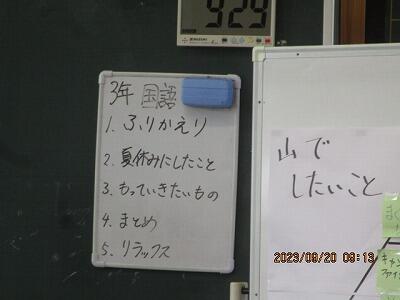 929
3年 国語
1. ふりかえり
2. 夏休みにしたこと
3. もっていきたいもの
4. まとめ
5. リラックス
山で
したいこと
2023/09/20 09:13